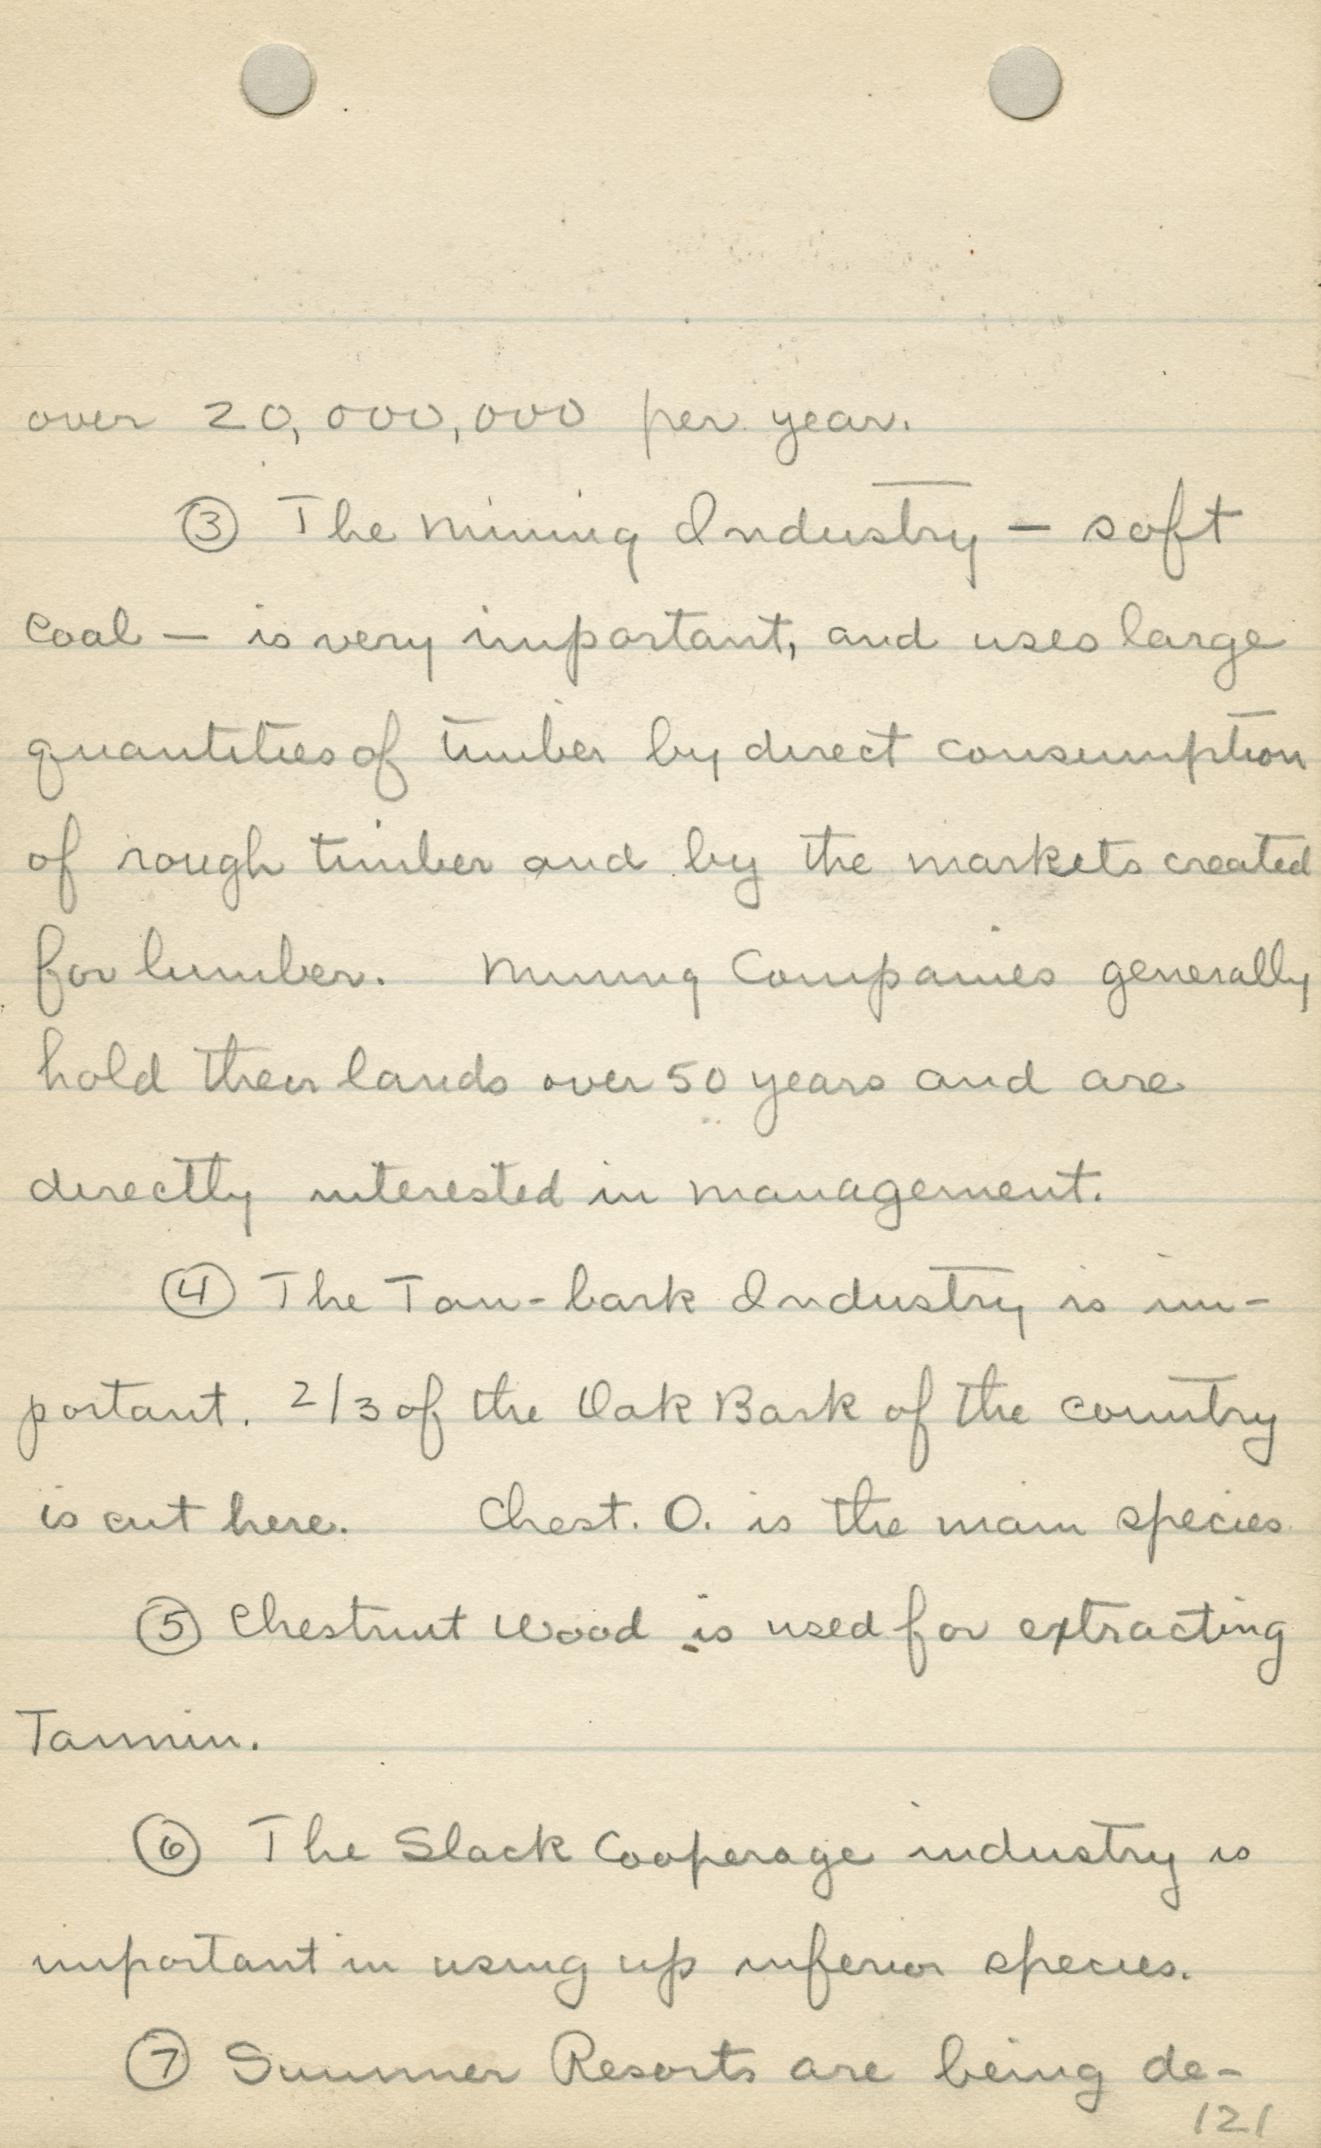 over 20,000,000 per year.
③ The Mining Industry — soft
Coal — is very important, and uses large
quantities of timber by direct consumption
of rough timber and by the markets created
for lumber. Mining Companies generally
hold their lands over 50 years and are
directly interested in management.
④ The Tan-bark Industry is im-
portant. 2/3 of the Oak Bark of the country
is cut here. Chest. O. is the main species
⑤ Chestnut Wood is used for extracting
Tannin.
⑥ The Slack Cooperage industry is
important in using up inferior species.
⑦ Summer Resorts are being de-
121